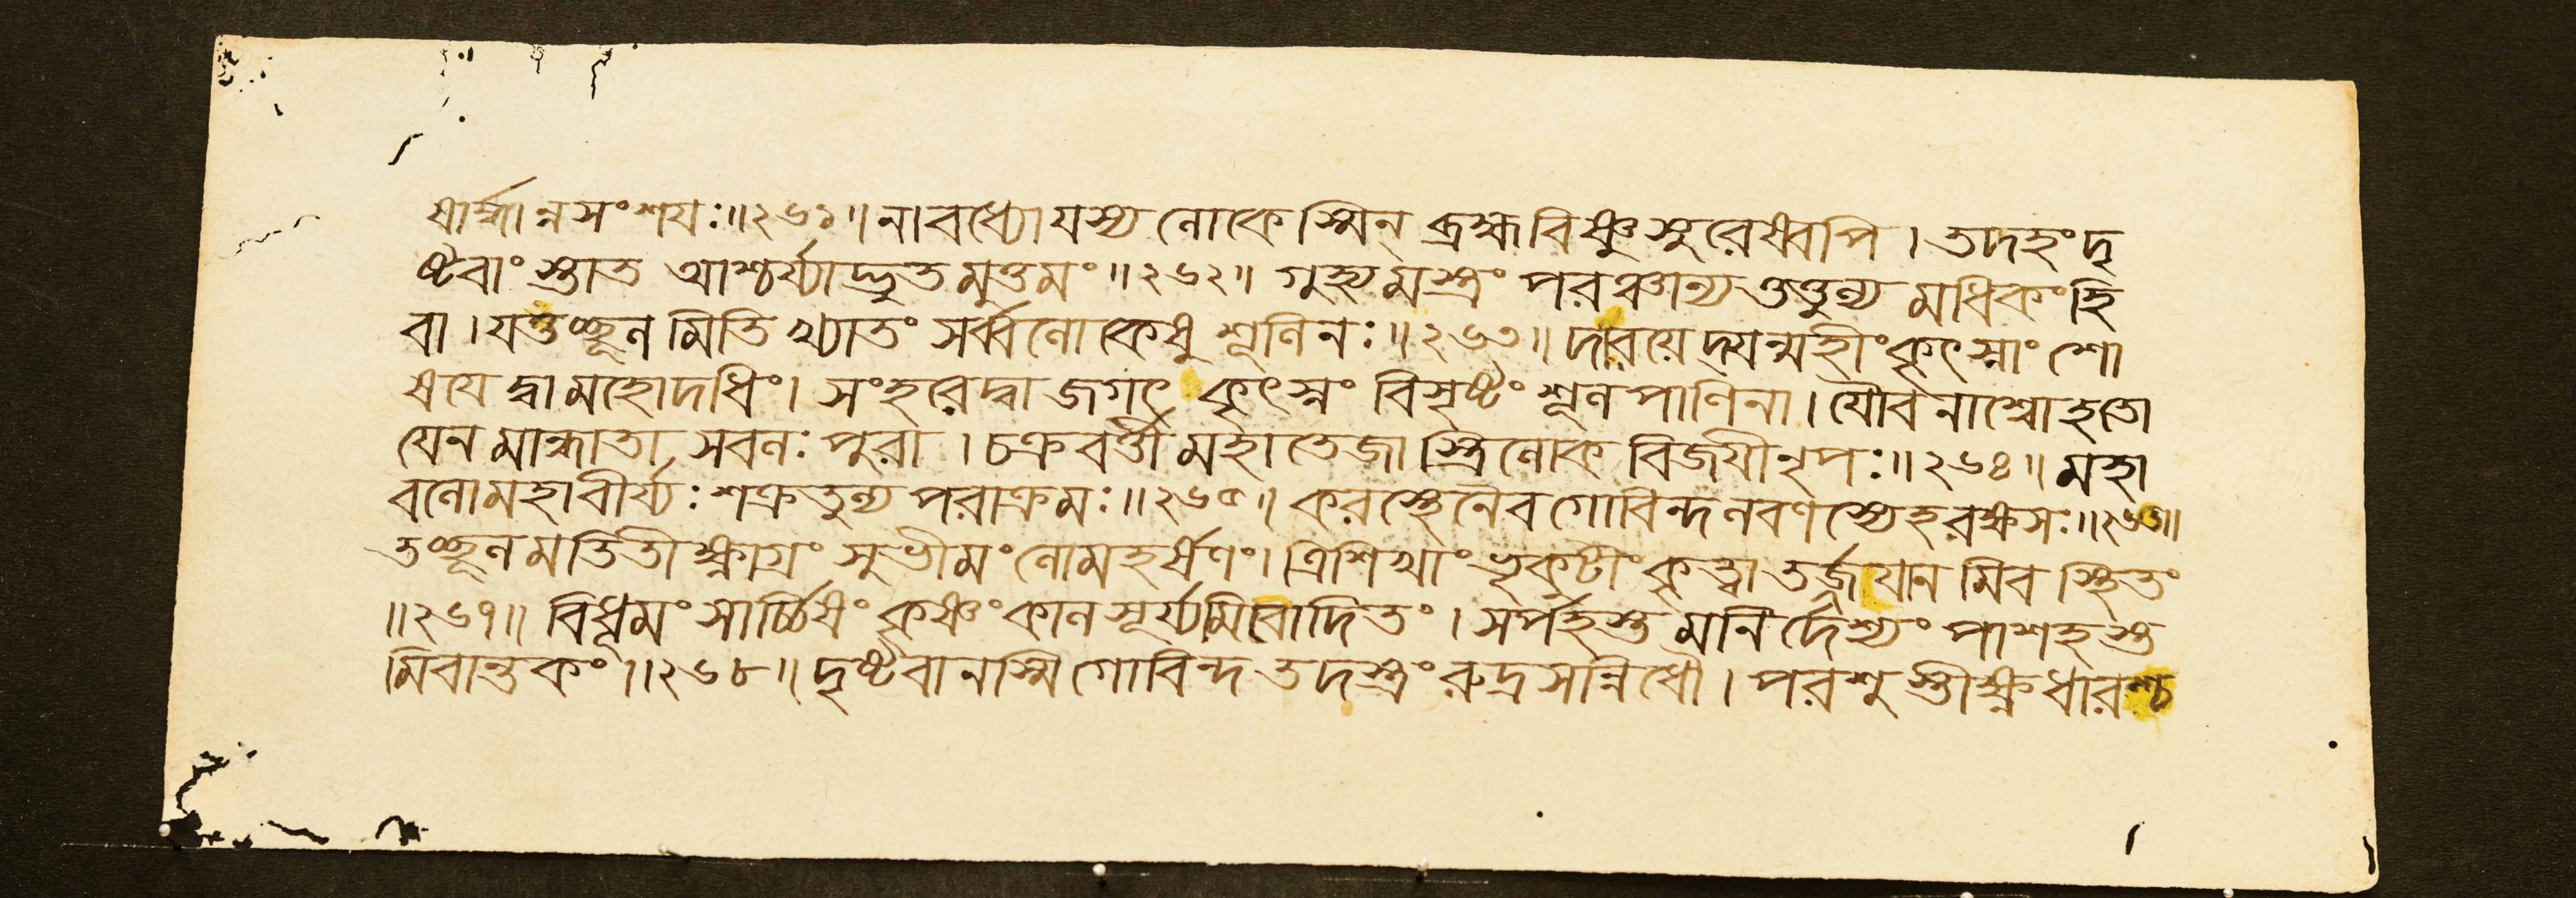 ষার্দ্ধান্ন সংশযঃ ॥ ২৬১ ॥ নাবধ্যো যস্য লোকেস্মিন্ ব্রহ্মবিষ্ণুসুরেষ্বপি । তদহং দৃ
ষ্টবাংস্তাত আশ্চর্য্যাদ্ভুতমুত্তমং ॥ ২৬২ ॥ গুহ্যমস্ত্রং পরঞ্চান্য ত্তত্তুল্য মধিকং হি
বা । যত্তচ্ছূল মিতি খ্যাতং সর্ব্বলোকেষু শূলিনঃ ॥ ২৬৩ ॥ দারয়েদ্যন্মহীং কৃৎস্নাং শো
ষযেদ্বা মহোদধিং । সংহরেদ্বা জগৎ কৃৎস্নং বিসৃষ্টং শূলপাণিনা । যৌবনাশ্বো হতো
যেন মান্ধাতা সবলঃ পুরা । চক্রবর্ত্তী মহাতেজাস্ত্রিলোক বিজযী নৃপঃ ॥ ২৬৪ ॥ মহা
বলো মহাবীর্য্যঃ শক্রতুল্য পরাক্রমঃ ॥ ২৬৫ ॥ করস্থেনৈব গোবিন্দ লবণস্যেহ রক্ষসঃ ॥ ২৬৬ ॥
তচ্ছূলমতিতীক্ষ্ণাগ্রং সুভীমং লোমহর্ষণং । ত্রিশিখাং ভৃকুটীং কৃত্বা তর্জ্জযান মিব স্থিতং
॥ ২৬৭ ॥ বিধূমং সার্চ্চিষং কৃষ্ণং কালসূর্য্যমিবোদিতং । সর্পহস্ত মনির্দ্দেশ্যং পাশহস্ত
মিবান্তকং ॥ ২৬৮ ॥ দৃষ্টবানস্মি গোবিন্দ তদস্ত্রং রুদ্রসন্নিধৌ । পরশুস্তীক্ষ্ণধারশ্চ